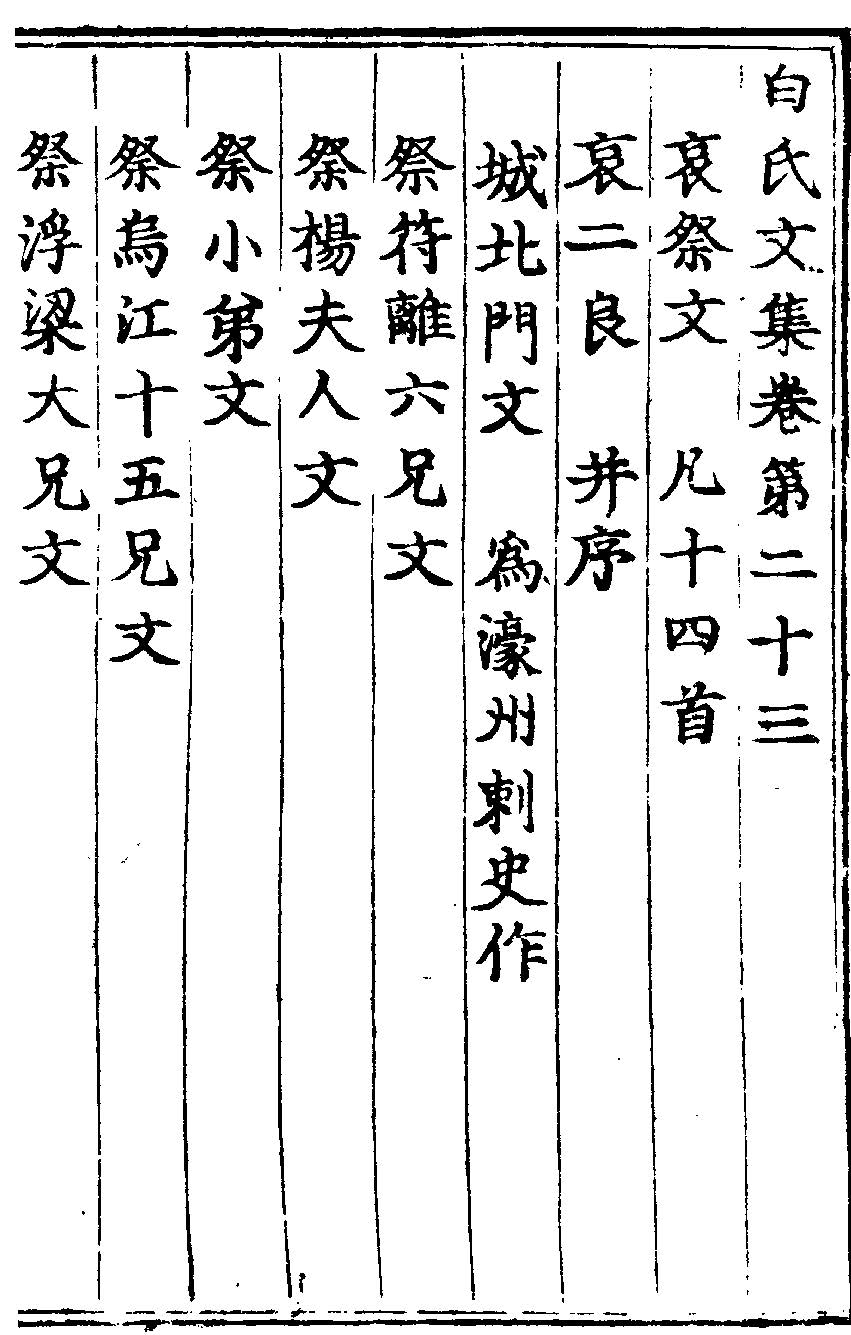 白氏文集卷第二十三
哀祭文 凡十四首
哀二良 并序
城北門文 爲濠州刺史作
祭符離六兄文
祭楊夫人文
祭小弟文
祭烏江十五兄文
祭浮梁大兄文